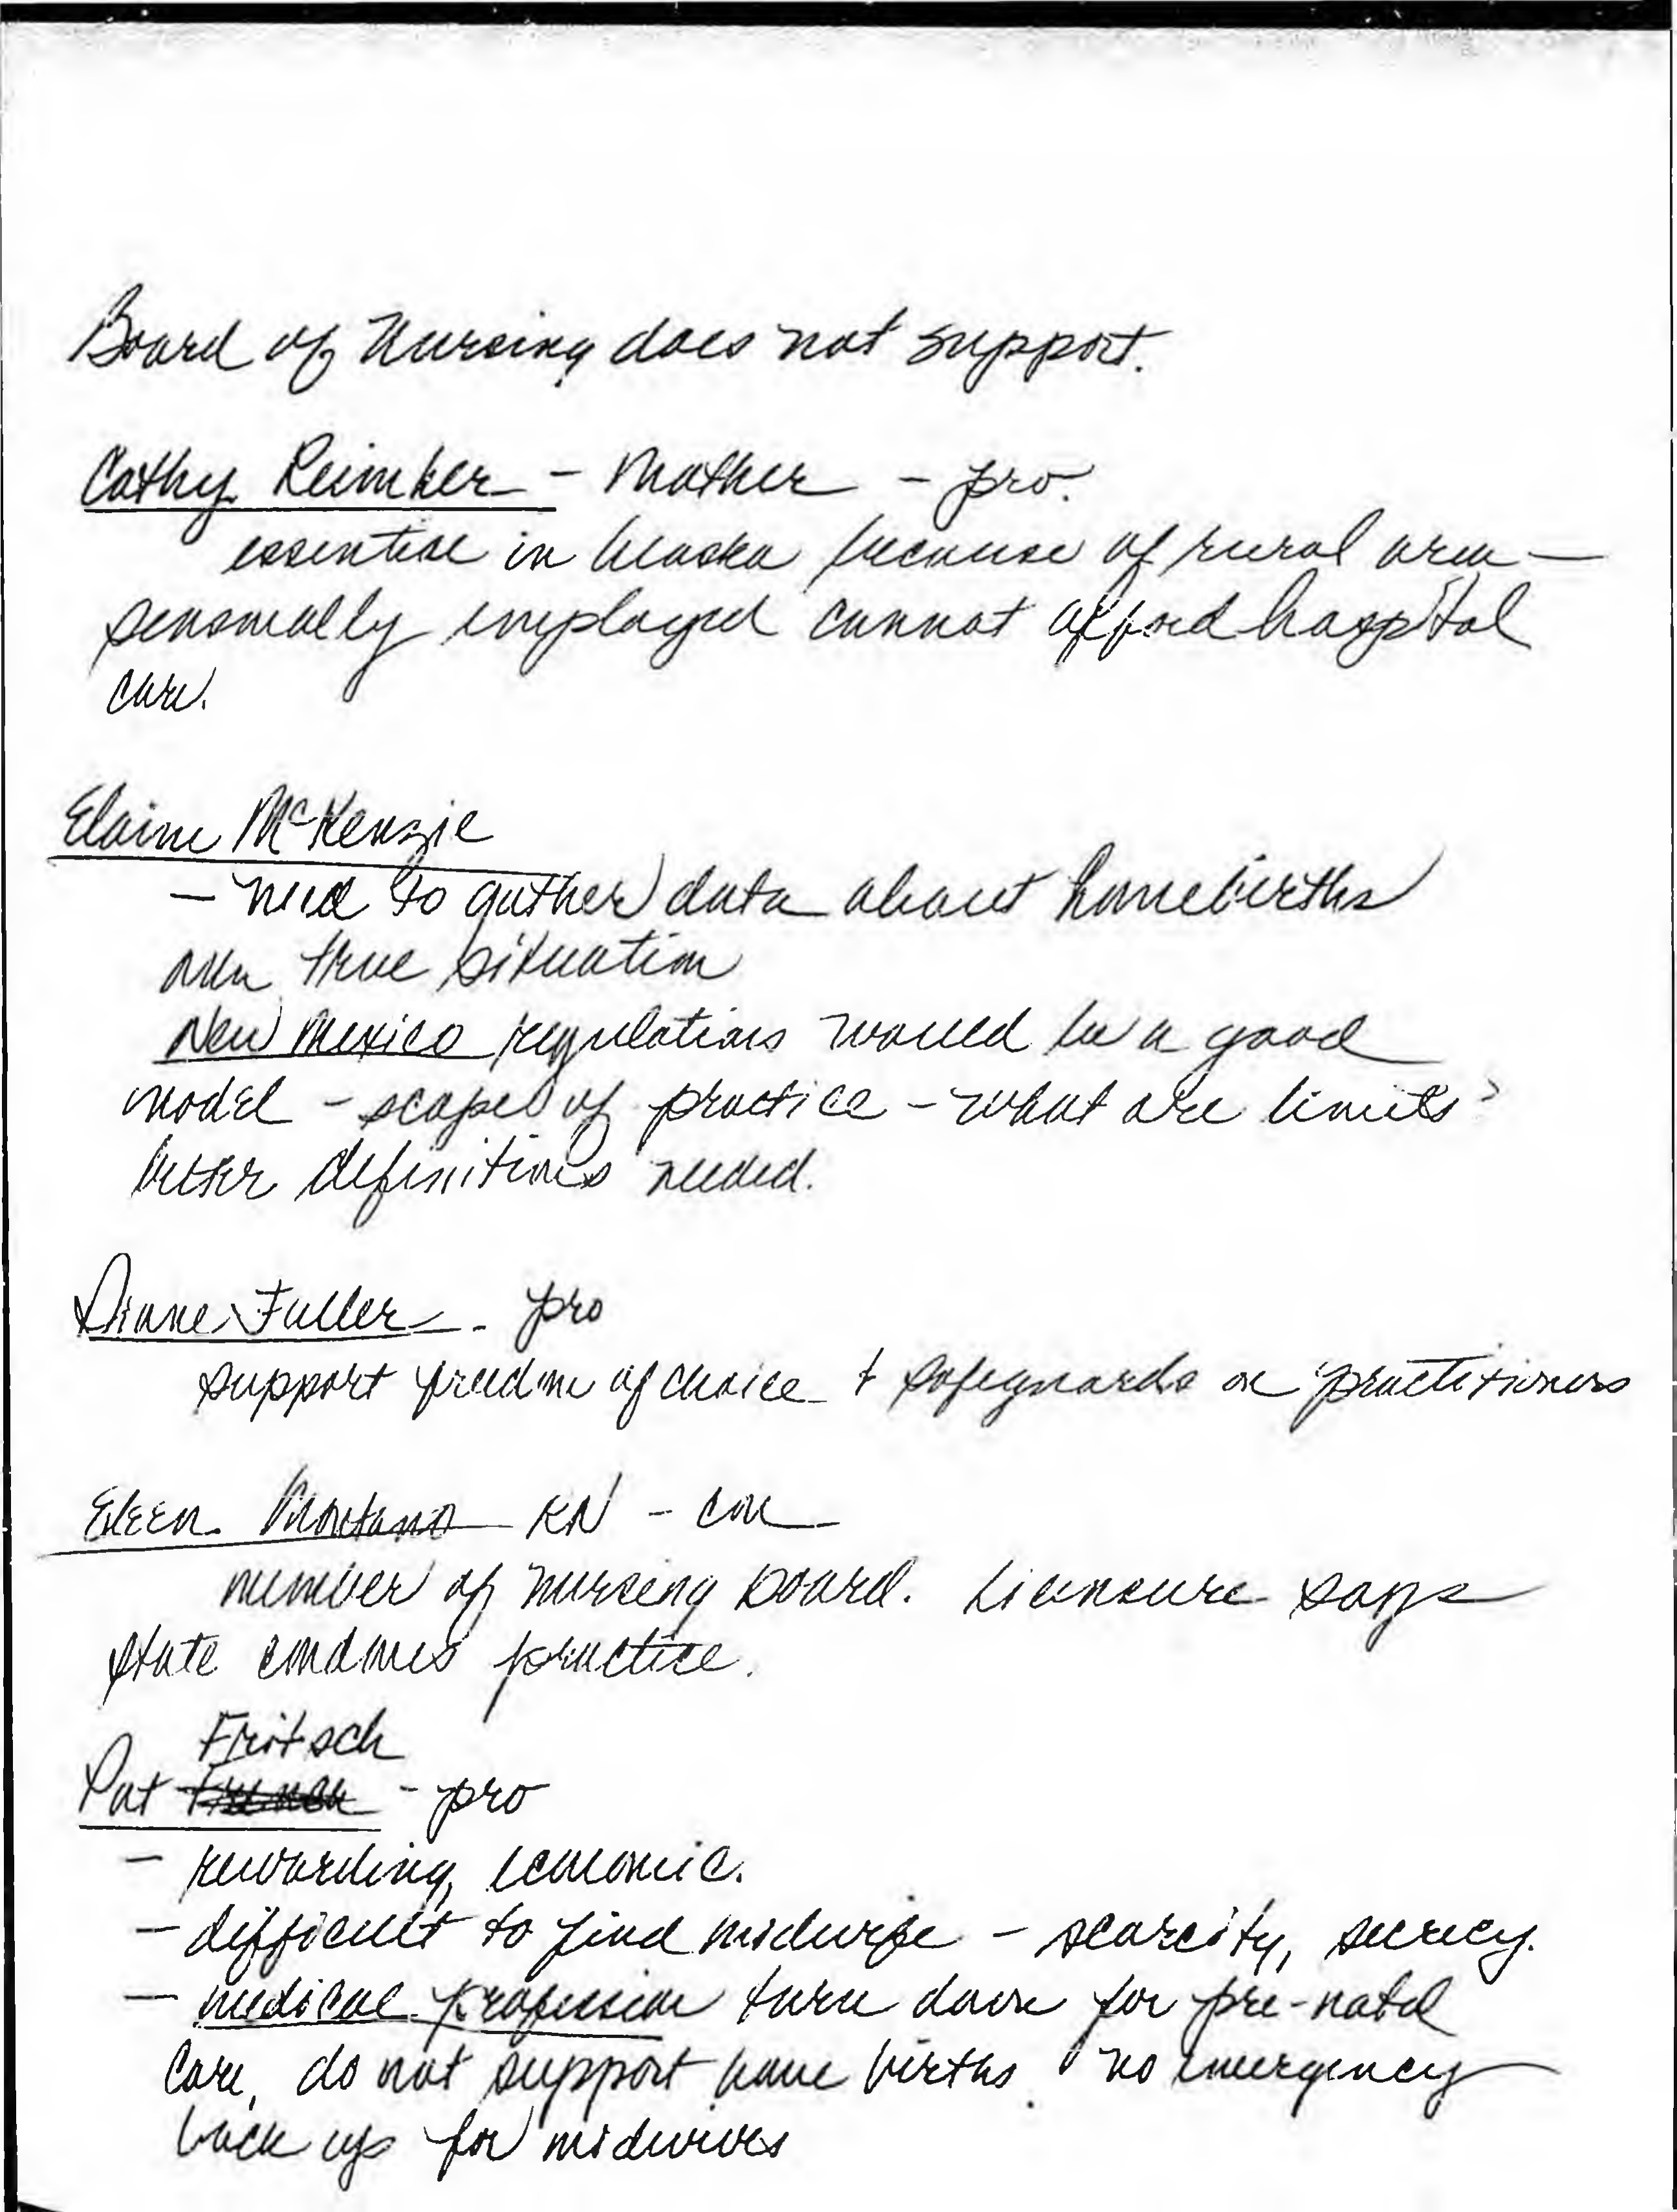 Board of Nursing does not support.
Cathy Reimker - Mother - pro.
essential in Alaska because of rural area —
seasonally employed cannot afford hospital
care.
Elaine McKenzie
- need to gather data about homebirths
true situation
New Mexico regulations would be a good
model - scope of practice - what are limits?
better definitions needed.
Diane Fuller - pro
support freedom of choice + safeguards on practitioners
Eleen Montano RN - con
member of nursing board. Licensure says
state condones practice.
Fritsch
Pat French - pro
- rewarding, economic.
- difficult to find midwife - scarcity, secrecy.
- medical profession turn down for pre-natal
care, do not support home births. no emergency
back up for midwives